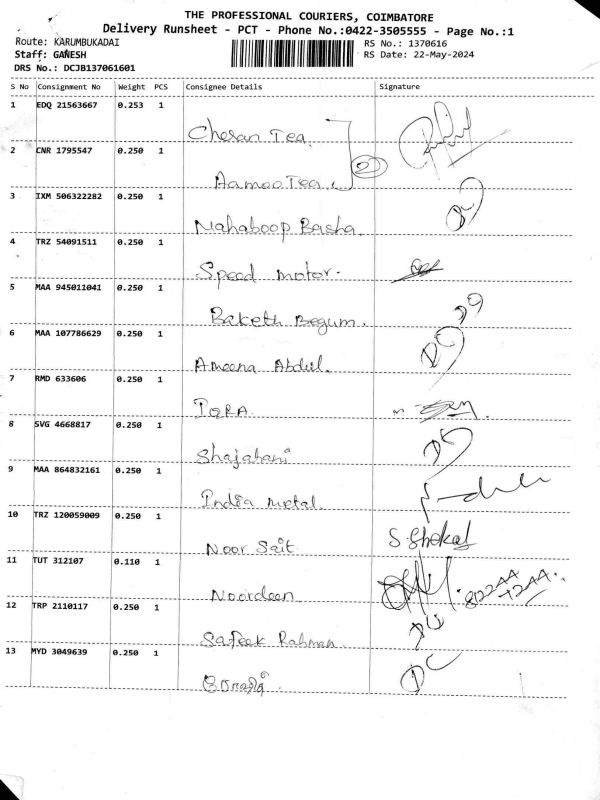 THE PROFESSIONAL COURIERS, COIMBATORE
Delivery Runsheet - PCT - Phone No.:0422-3505555 - Page No.:1
Route: KARUMBUKADAI RS No.: 1370616
Staff: GANESH RS Date: 22-May-2024
DRS No.: DCJB137061601
S No Consignment No Weight PCS Consignee Details Signature
1 EDQ 21563667 0.253 1
Chesan Tea
2 CNR 1795547 0.250 1
2
Aamoo Tea
3 IXM 506322282 0.250 1
Mahaboop Basha.
4 TRZ 54091511 0.250 1
Speed motor.
5 MAA 945011041 0.250 1
Baketh Begum.
6 MAA 107786629 0.250 1
DC
Ameena Abdul.
7 RMD 633606 0.250 1
IQRA
8 SVG 4668817 0.250 1
Shajahani
9 MAA 864832161 0.250 1
India metal.
10 TRZ 120059009 0.250 1
Noor Sait S. Shekar
11 TUT 312107 0.110 1
Noordeen
12 TRP 2110117 0.250 1
Safeek Rahman.
13 MYD 3049639 0.250 1
DC